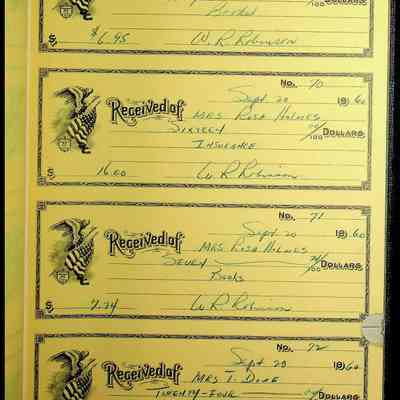 /100 DOLLARS
Books
$ $6.95 W. R. Robinson
No. 70
Sept. 20 1960
Received of MRS ROSA HOLMES
SIXTEEN 00/100 DOLLARS
INSURANCE
$ 16.00 W R Robinson
No. 71
Sept. 20 1960
Received of MRS ROSA HOLMES
SEVEN 74/100 DOLLARS
Books
$ 7.74 W R Robinson
No. 72
Sept 20 1960
Received of MRS T.
TWENTY-FOUR DOLLARS